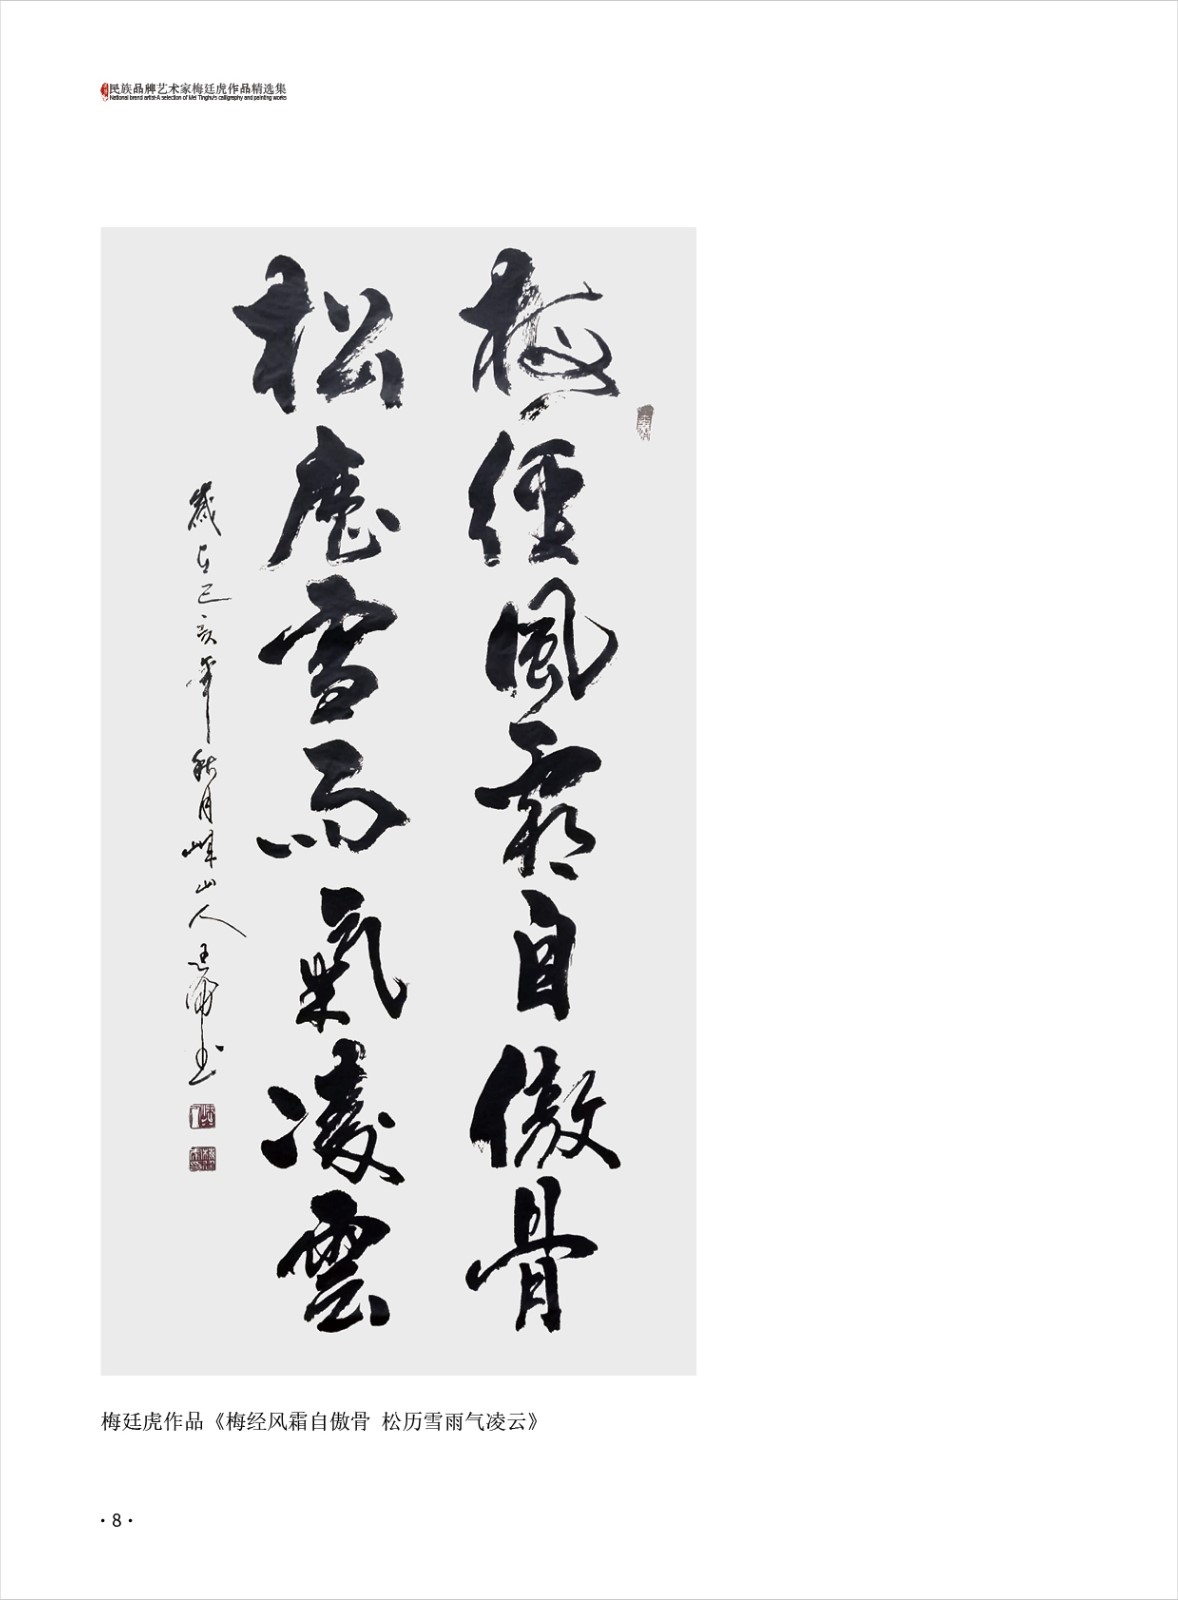 民族品牌艺术家梅廷虎作品精选集
National brand artist-A selection of Mei Tinghu's calligraphy and painting works
梅經風霜自傲骨
松歷雪雨氣凌雲
歲在己亥年秋月峰山人廷虎书
梅廷虎作品《梅经风霜自傲骨 松历雪雨气凌云》
·8·